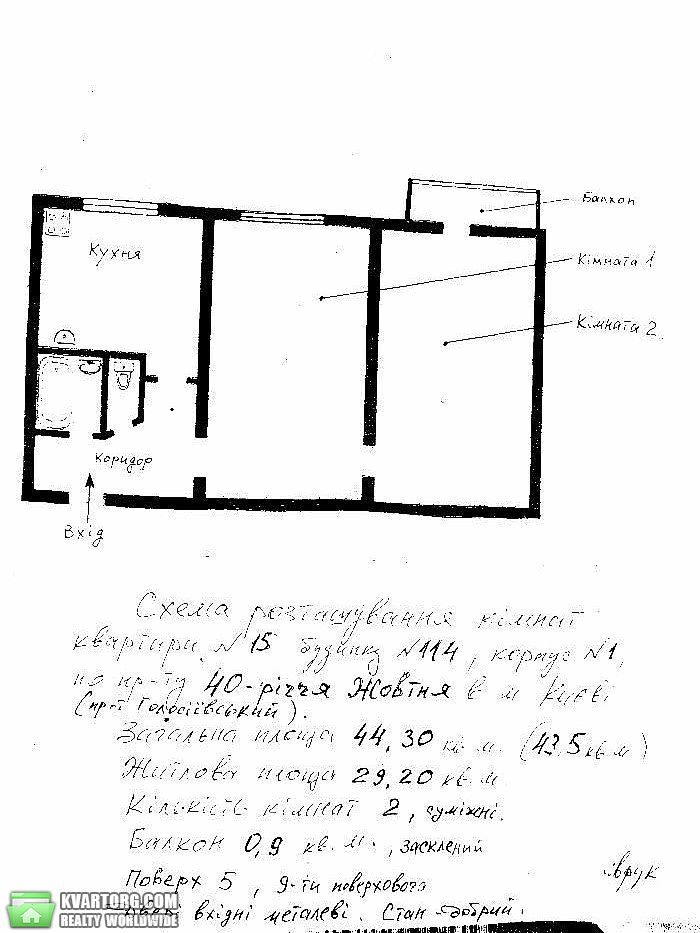 Балкон
Кухня
Кімната 1
Кімната 2
коридор
Вхід
Схема розташування кімнат
квартири N 15 будинку N 114, корпус N1,
по пр-ту 40-річчя Жовтня в м Києві
(пр-т Голосіївський).
Загальна площа 44,30 кв.м. (43.5 кв.м)
Житлова площа 29,20 кв.м.
Кількість кімнат 2, суміжні.
Балкон 0,9 кв.м., засклений
Поверх 5, 9-ти поверхового
вхідні металеві. Стан добрий.
KVARTORG.COM
REALTY WORLDWIDE